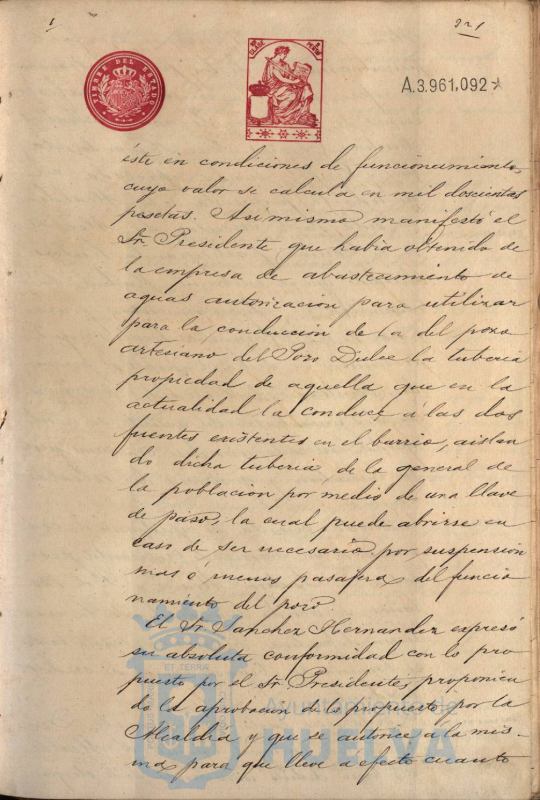 1
221
TIMBRE DEL ESTADO
A.3.961,092
éste en condiciones de funcionamiento,
cuyo valor se calcula en mil doscientas
pesetas. Asimismo manifestó el
Sr. Presidente que había obtenido de
la empresa de abastecimiento de
aguas autorización para utilizar
para la conducción de la del pozo
arteciano del Pozo Dulce la tubería
propiedad de aquella que en la
actualidad la conduce á las dos
fuentes existentes en el barrio, aislan
do dicha tubería de la general de
la población por medio de una llave
de paso, la cual puede abrirse en
caso de ser necesario por suspensión
mas ó menos pasajera del funcio
namiento del pozo.
El Sr. Sanchez Hernandez expresó
su absoluta conformidad con lo pro
puesto por el Sr. Presidente, proponien
do la aprobación de lo propuesto por la
Alcaldía y que se autorice a la mis-
ma para que lleve a efecto cuanto
ET TERRA
Ayuntamiento de
HUELVA